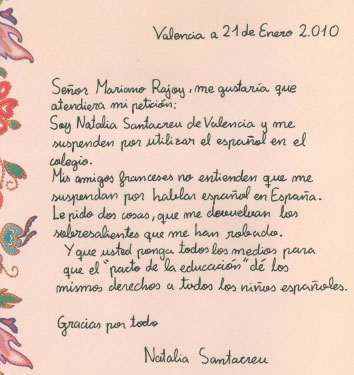 Valencia a 21 de Enero 2.010
Señor Mariano Rajoy, me gustaría que
atendiera mi petición:
Soy Natalia Santacreu de Valencia y me
suspenden por utilizar el español en el
colegio.
Mis amigos franceses no entienden que me
suspendan por hablar español en España.
Le pido dos cosas, que me devuelvan los
sobresalientes que me han robado.
Y que usted ponga todos los medios para
que el "pacto de la educación" dé los
mismos derechos a todos los niños españoles.
Gracias por todo
Natalia Santacreu